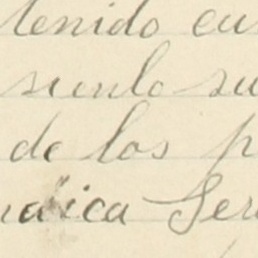 tenido en
siento su
de los p
ica Ser